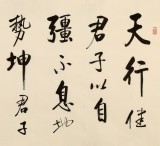 天行健
君子以自
彊不息地
勢坤君子